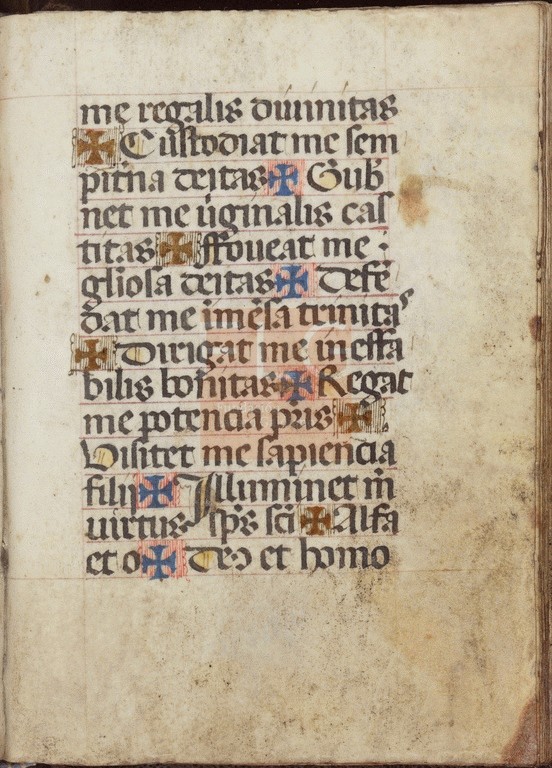 me regalis diuinitas
✠ Custodiat me sem
pit̉na deitas ✠ Gub̉
net me ũginalis cas
titas ✠ ffoueat me
gl̃iosa deitas ✠ Defẽ
dat me ĩmẽsa trinitas
✠ Dirigat me ineffa
bilis bonitas ✠ Regat
me potencia pr̃is ✠
Visitet me sapiencia
filij ✠ Illuminet m̃
uirtus sp̃s sc̃i ✠ Alfa
et o ✠ Deꝰ et homo